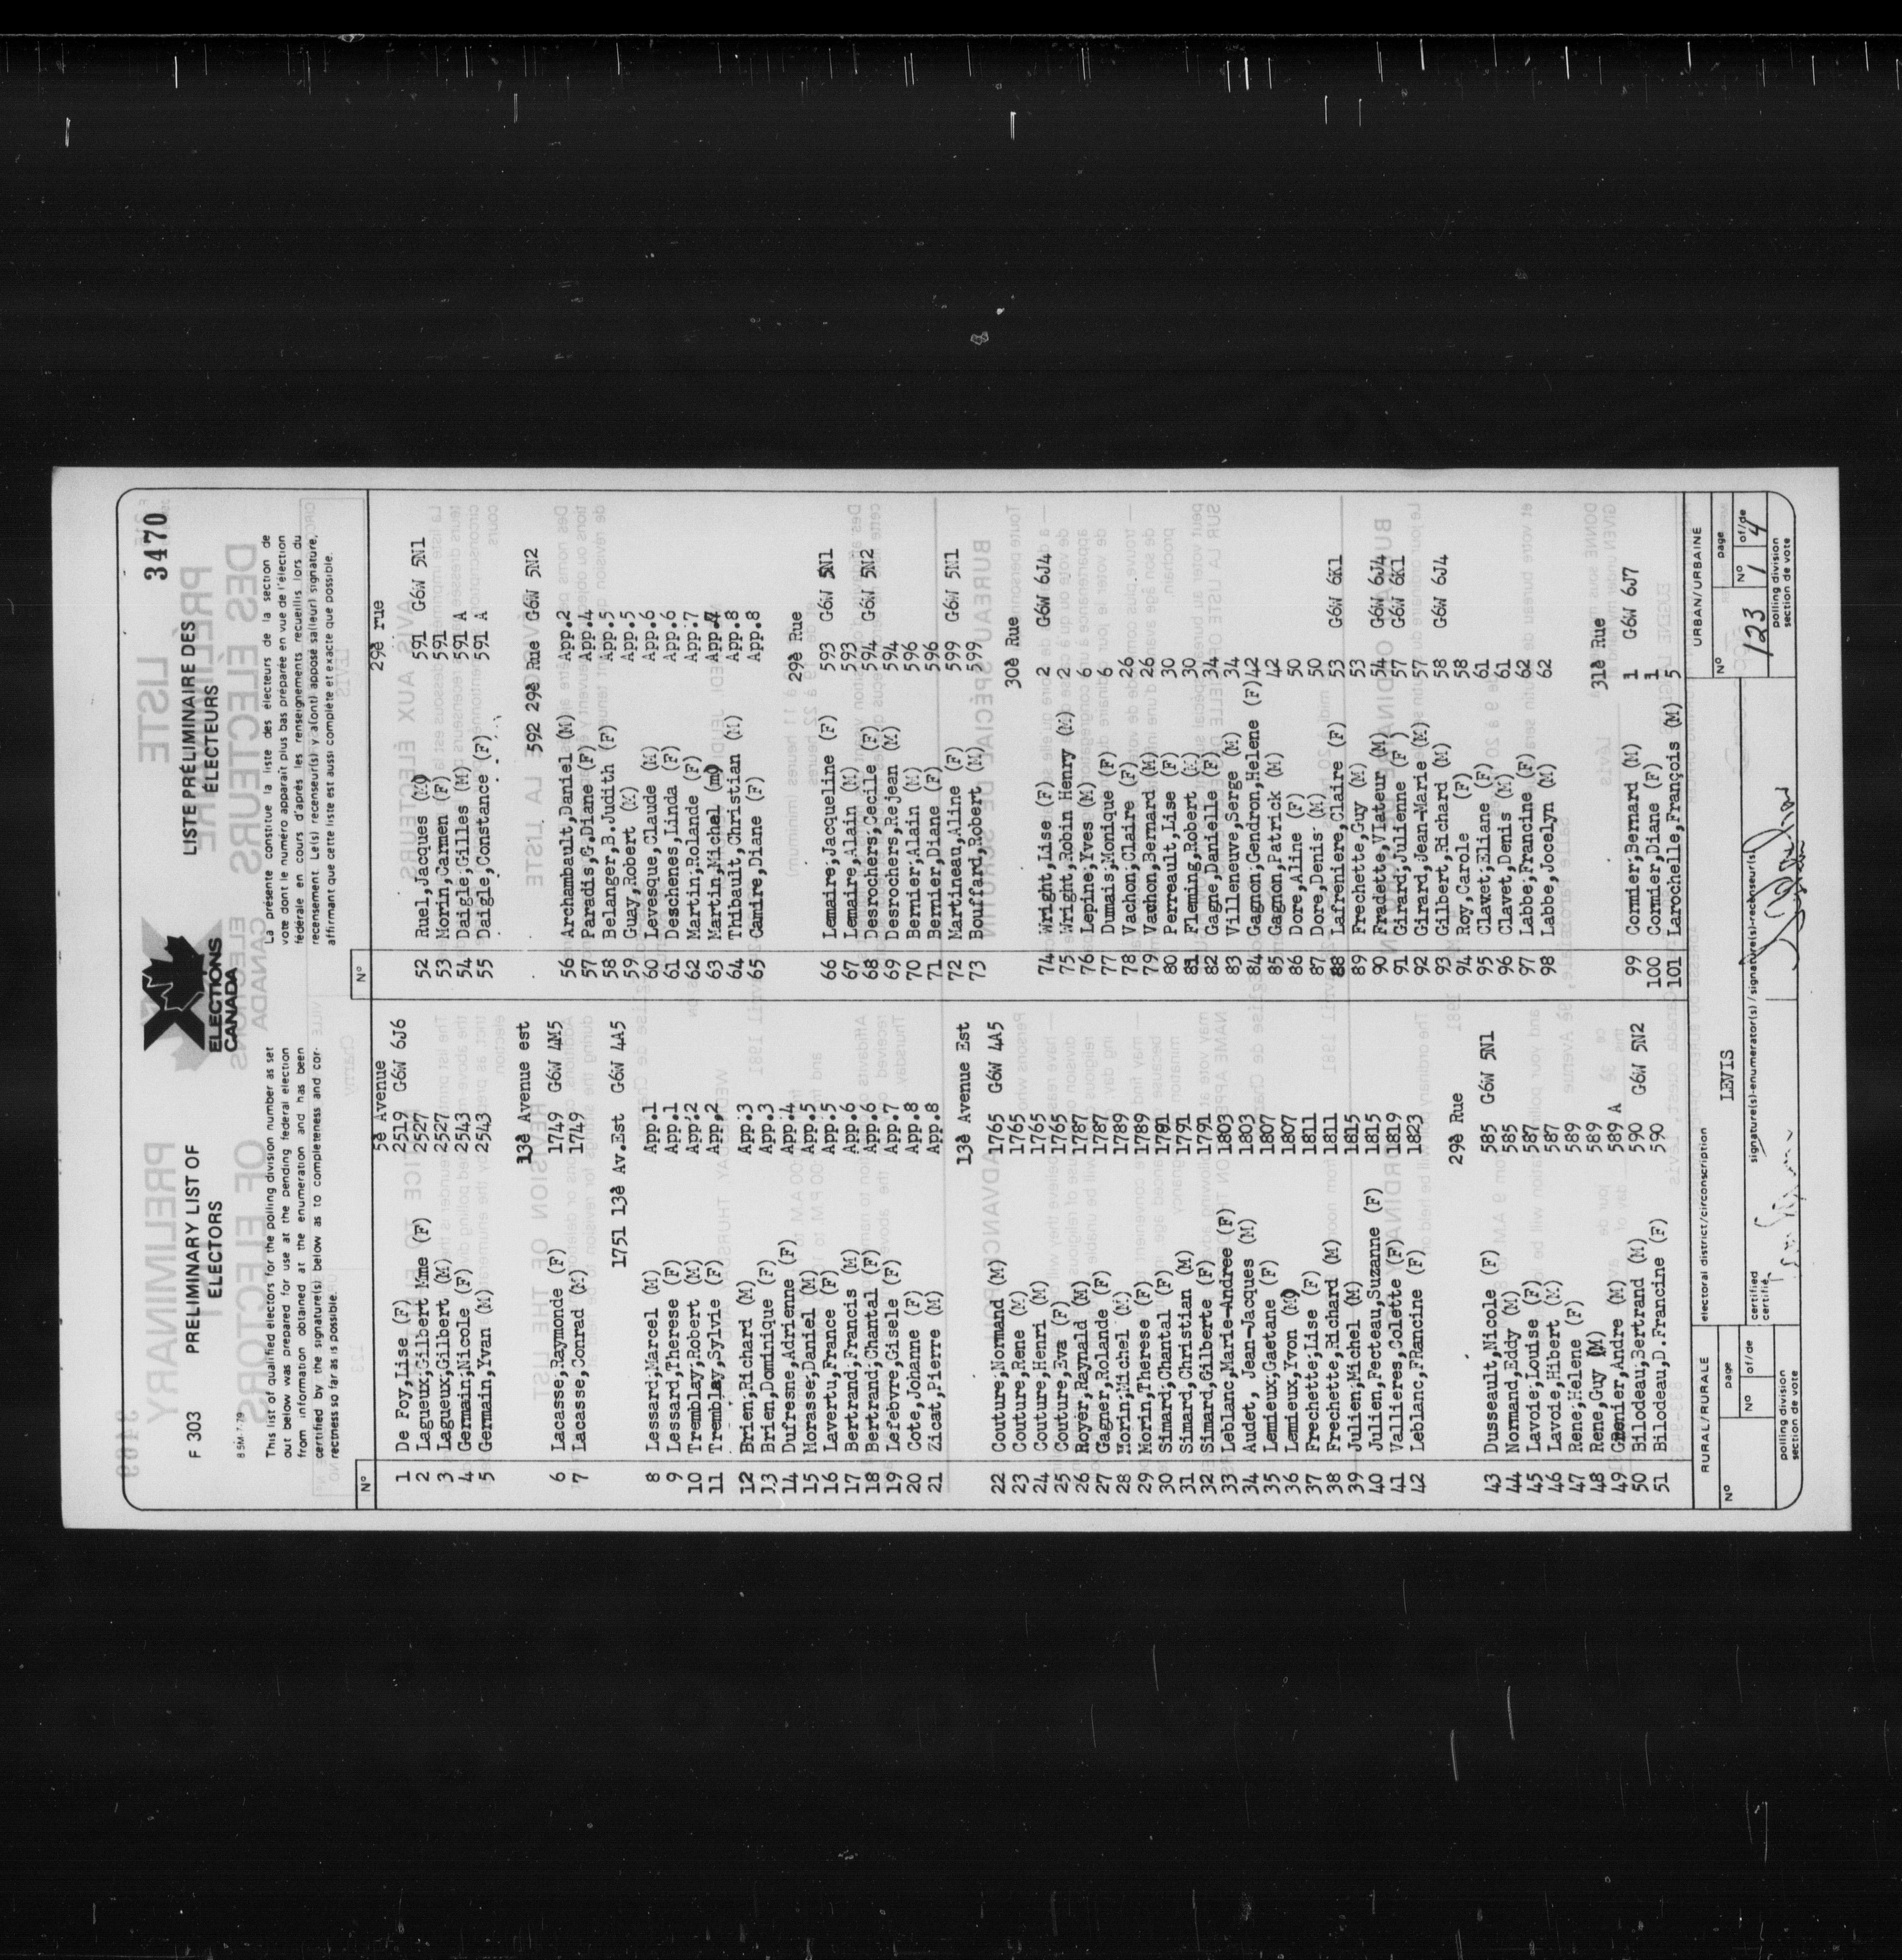 3470
F 303
PRELIMINARY LIST OF
ELECTORS
ELECTIONS
CANADA
LISTE PRÉLIMINAIRE DES
ÉLECTEURS
85M-7-79
This list of qualified electors for the polling division number as set
out below was prepared for use at the pending federal election
from information obtained at the enumeration and has been
certified by the signature(s) below as to completeness and cor-
rectness so far as is possible.
La présente constitue la liste des électeurs de la section de
vote dont le numéro apparaît plus bas préparée en vue de l'élection
fédérale en cours d'après les renseignements recueillis lors du
recensement. Le(s) recenseur(s) y a(ont) apposé sa(leur) signature,
affirmant que cette liste est aussi complète et exacte que possible.
Nº
5è Avenue
1 De Foy,Lise (F) 2519 G6W 6J6
2 Lagueux;Gilbert Mme (F) 2527
3 Lagueux;Gilbert (M) 2527
4 Germain;Nicole (F) 2543
5 Germain,Yvan (M) 2543
13è Avenue est
6 Lacasse;Raymonde (F) 1749 G6W 4M5
7 Lacasse,Conrad (M) 1749
1751 13è Av.Est G6W 4A5
8 Lessard;Marcel (M) App.1
9 Lessard,Therese (F) App.1
10 Tremblay;Robert (M) App.2
11 Tremblay,Sylvie (F) App,2
12 Brien;Richard (M) App.3
13 Brien,Dominique (F) App.3
14 Dufresne,Adrienne (F) App.4
15 Morasse;Daniel (M) App.5
16 Lavertu,France (F) App.5
17 Bertrand;Francis (M) App.6
18 Bertrand;Chantal (F) App.6
19 Lefebvre,Gisele (F) App.7
20 Cote,Johanne (F) App.8
21 Zicat,Pierre (M) App.8
13è Avenue Est
22 Couture;Normand (M) 1765 G6W 4A5
23 Couture,Rene (M) 1765
24 Couture;Henri (M) 1765
25 Couture,Eva (F) 1765
26 Royer,Raynald (M) 1787
27 Gagner,Rolande (F) 1787
28 Morin;Michel (M) 1789
29 Morin,Therese (F) 1789
30 Simard;Chantal (F) 1791
31 Simard,Christian (M) 1791
32 Simard,Gilberte (F) 1791
33 Leblanc,Marie-Andree (F) 1803
34 Audet, Jean-Jacques (M) 1803
35 Lemieux;Gaetane (F) 1807
36 Lemieux,Yvon (M) 1807
37 Frechette;Lise (F) 1811
38 Frechette,Richard (M) 1811
39 Julien;Michel (M) 1815
40 Julien,Fecteau,Suzanne (F) 1815
41 Vallieres,Colette (F) 1819
42 Leblanc,FRancine (F) 1823
29è Rue
43 Dusseault,Nicole (F) 585 G6W 5N1
44 Normand,Eddy (M) 585
45 Lavoie;Louise (F) 587
46 Lavoie,Hibert (M) 587
47 Rene;Helene (F) 589
48 Rene,Guy (M) 589
49 Grenier,Andre (M) 589 A
50 Bilodeau;Bertrand (M) 590 G6W 5N2
51 Bilodeau,D.Francine (F) 590
Nº
29è rue
52 Ruel,Jacques (M) 591 G6W 5N1
53 Morin,Carmen (F) 591
54 Daigle;Gilles (M) 591 A
55 Daigle,Constance (F) 591 A
592 29è Rue G6W 5N2
56 Archambault,Daniel (M) App.2
57 Paradis,G.Diane (F) App.4
58 Belanger,B.Judith (F) App.5
59 Guay,Robert (M) App.5
60 Levesque,Claude (M) App.6
61 Deschenes,Linda (F) App.6
62 Martin;Rolande (F) App.7
63 Martin,Michel (m) App.7
64 Thibault,Christian (M) App.8
65 Camire,Diane (F) App.8
29è Rue
66 Lemaire;Jacqueline (F) 593 G6W 5N1
67 Lemaire,Alain (M) 593
68 Desrochers;Cecile (F) 594 G6W 5N2
69 Desrochers,Rejean (M) 594
70 Bernier;Alain (M) 596
71 Bernier,Diane (F) 596
72 Martineau,Aline (F) 599 G6W 5N1
73 Bouffard,Robert (M) 599
30è Rue
74 Wright,Lise (F) 2 G6W 6J4
75 Wright,Robin Henry (M) 2
76 Lepine;Yves (M) 6
77 Dumais;Monique (F) 6
78 Vachon;Claire (F) 26
79 Vachon,Bernard (M) 26
80 Perreault,Lise (F) 30
81 Fleming,Robert (M) 30
82 Gagne,Danielle (F) 34
83 Villeneuve,Serge (M) 34
84 Gagnon;Gendron,Helene (F) 42
85 Gagnon,Patrick (M) 42
86 Dore,Aline (F) 50
87 Dore,Denis (M) 50
88 Lafreniere,Claire (F) 53 G6W 6K1
89 Frechette,Guy (M) 53
90 Fradette,VIateur (M) 54 G6W 6J4
91 Girard;Julienne (F ) 57 G6W 6K1
92 Girard,Jean-Marie (M) 57
93 Gilbert,Richard (M) 58 G6W 6J4
94 Roy,Carole (F) 58
95 Clavet;Eliane (F) 61
96 Clavet,Denis (M) 61
97 Labbe;Francine (F) 62
98 Labbe,Jocelyn (M) 62
31è Rue
99 Cormier;Bernard (M) 1 G6W 6J7
100 Cormier,Diane (F) 1
101 Larochelle,François (M) 5
RURAL/RURALE
Nº
page
Nº of/de
polling division
section de vote
electoral district/circonscription
LEVIS
certified
certifié
signature(s)-enumerator(s) / signature(s)-recenseur(s)
URBAN/URBAINE
Nº
123
page
Nº of/de
1 4
polling division
section de vote